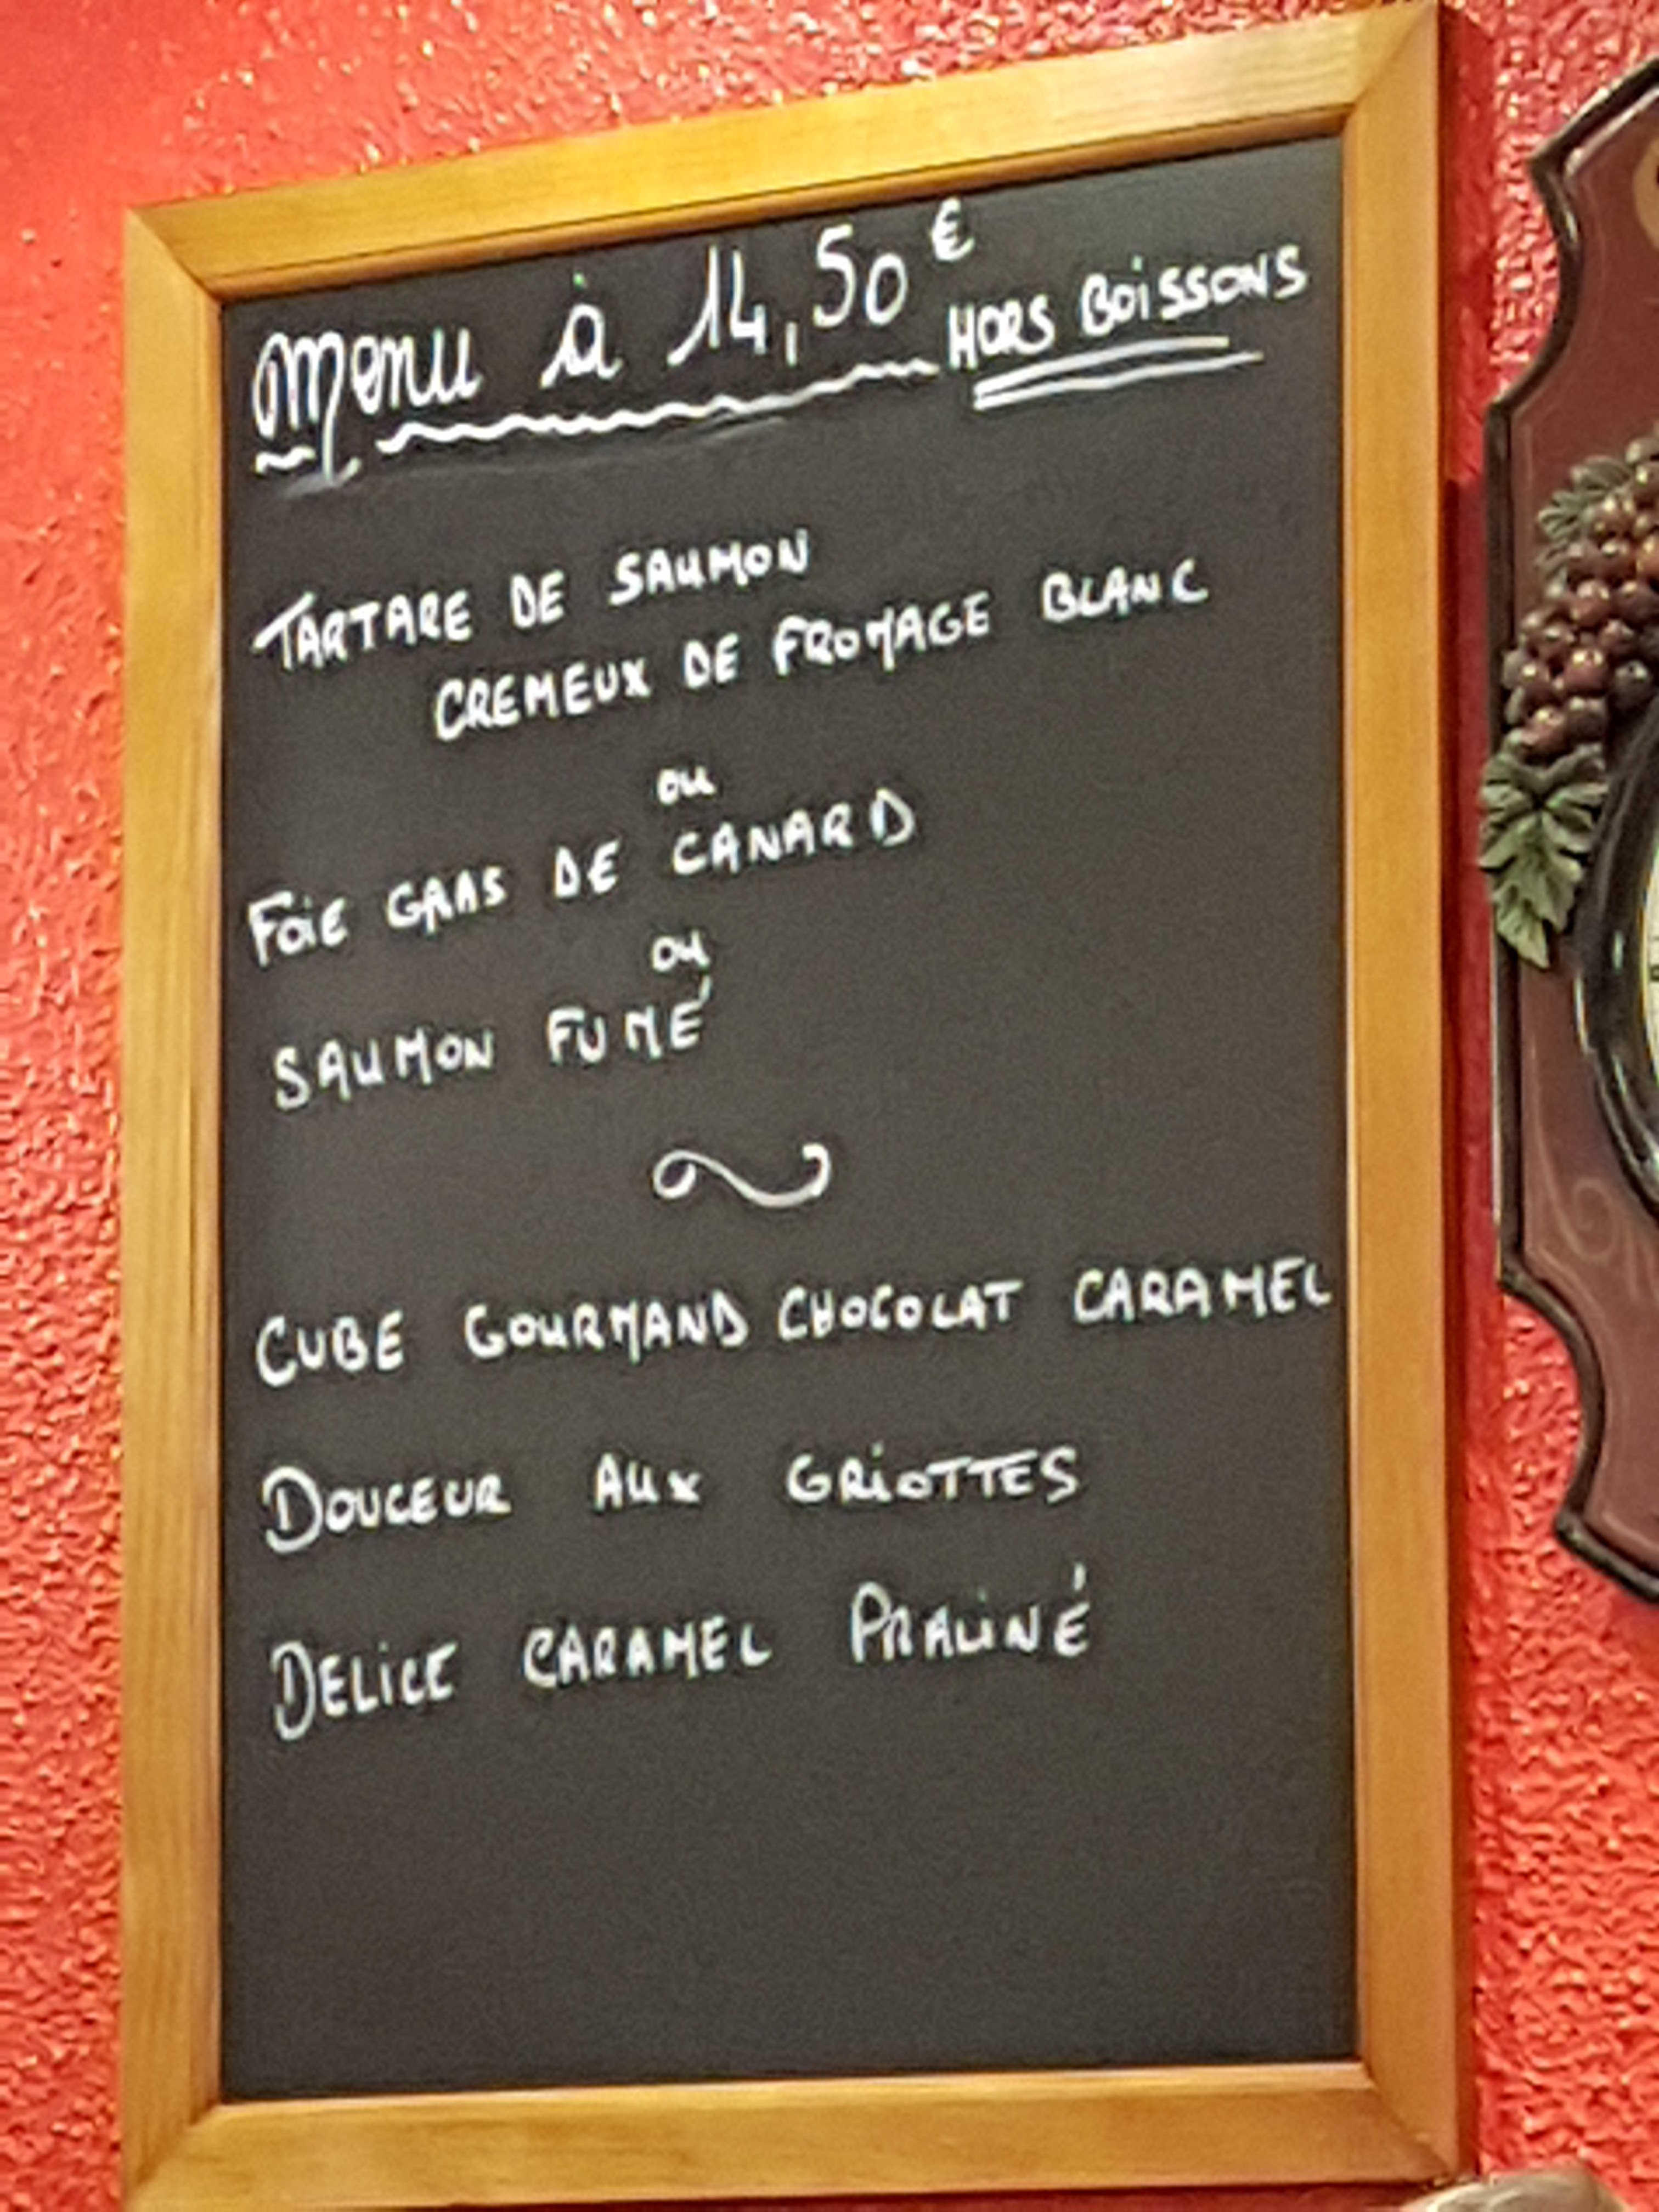 Menu à 14,50€ HORS BOISSONS
TARTARE DE SAUMON
CREMEUX DE FROMAGE BLANC
ou
FOIE GRAS DE CANARD
ou
SAUMON FUMÉ
CUBE GOURMAND CHOCOLAT CARAMEL
DOUCEUR AUX GRIOTTES
DELICE CARAMEL PRALINÉ